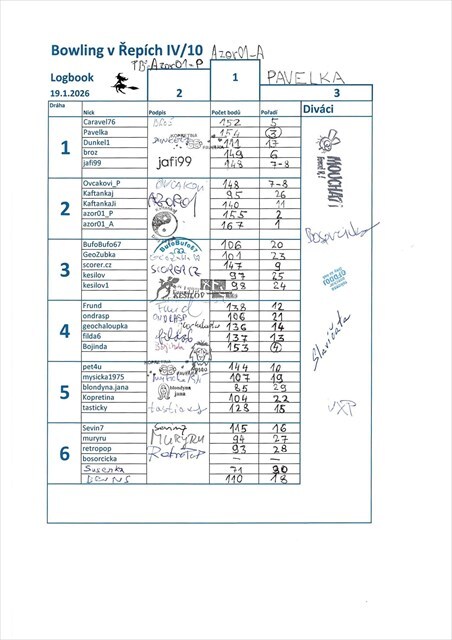 Bowling v Řepích IV/10 Azor01-A
TB: Azor01-P
Logbook 2 1 PAVELKA
19.1.2026 3
Dráha Nick Podpis Počet bodů Pořadí Diváci
1
Caravel76 152 5
Pavelka 154 3
Dunkel1 111 17
broz 149 6
jafi99 jafi99 148 7-8
MOUCHAŘI
2
Ovcakovi_P OVCAKOVI 148 7-8
Kaftankaj 95 26
KaftankaJi 140 11
azor01_P 155 2
azor01_A 167 1
Bosorcicka
3
BufoBufo67 BufoBufo67 106 20
GeoZubka 101 23
scorer.cz SCORER.CZ 147 9
kesilov 97 25
kesilov1 KESILOV 98 24
4
Frund Frund 138 12
ondrasp ONDRASP 106 21
geochaloupka 136 14
filda6 filda6 137 13
Bojinda 153 4
5
pet4u 144 10
mysicka1975 107 19
blondyna.jana blondyna jana 85 29
Kopretina 104 22
tasticky 128 15
6
Sevin7 Sevin7 115 16
muryru MURYRU 94 27
retropop Retropop 93 28
bosorcicka – –
Susenka 71 30
110 18